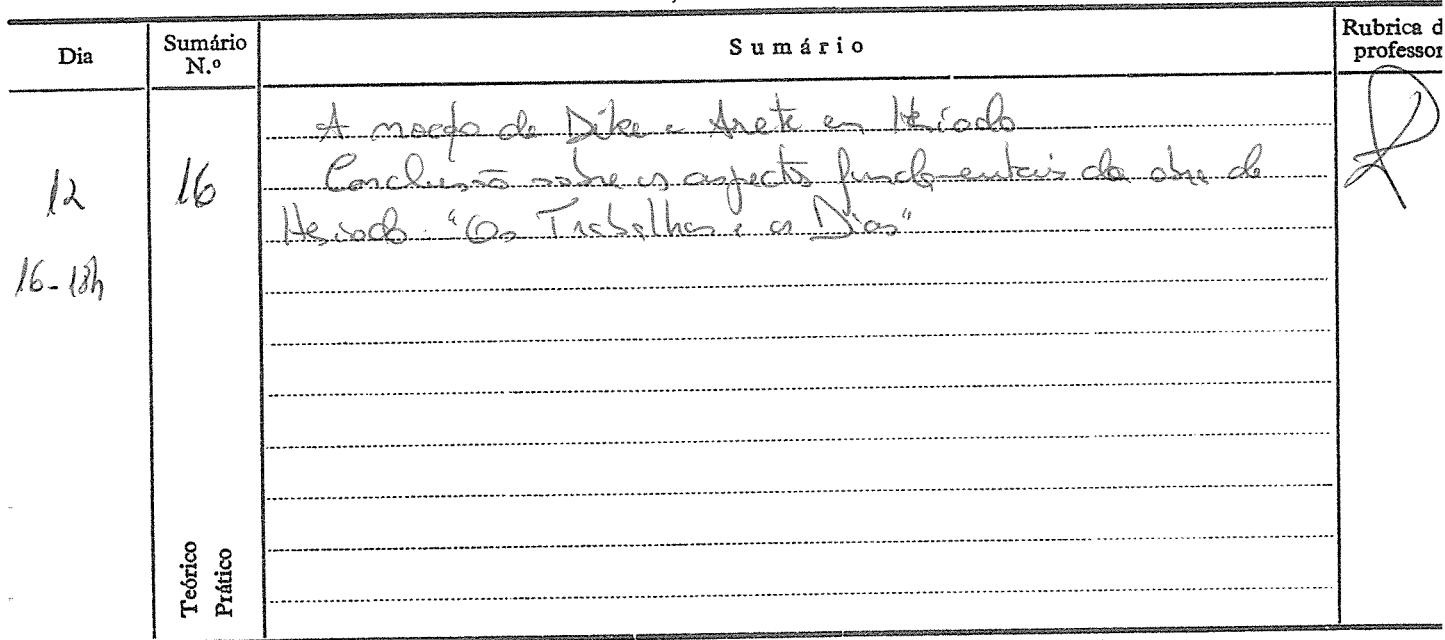 Dia
Sumário N.º
Sumário
Rubrica d
professor
12
16-18h
16
A noção de Dike e Arete em Hesíodo
Conclusão sobre os aspectos fundamentais da obra de
Hesíodo "Os Trabalhos e os Dias"
Teórico
Prático